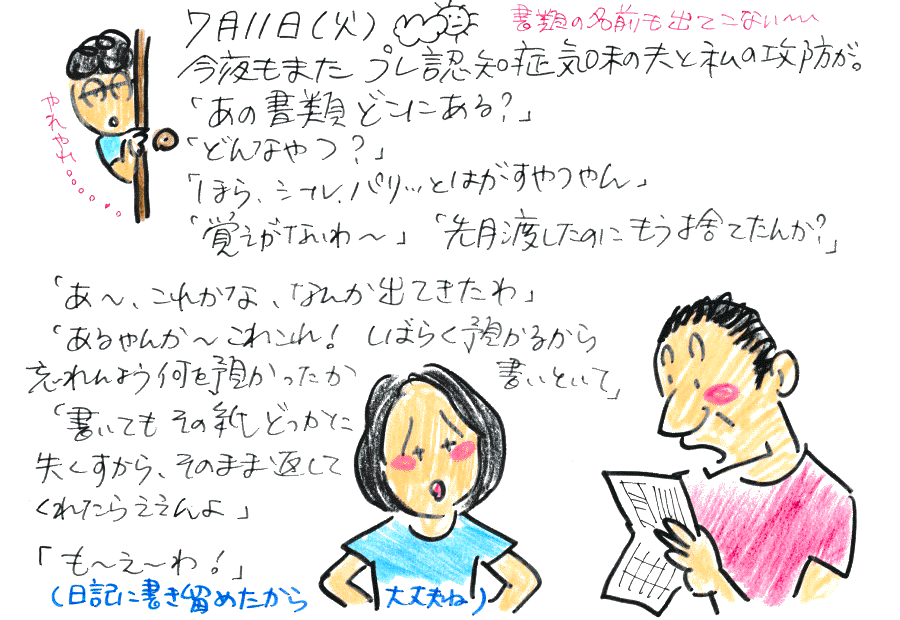 7月11日(火)
書類の名前も出てこない〜〜
今夜もまた プレ認知症気味の夫と私の攻防が。
「あの書類どこにある?」
「どんなやつ?」
「ほら、シール、パリッとはがすやつやん」
「覚えがないわ〜」「先月渡したのにもう捨てたんか?」
やれやれ。。。。。。。
「あ〜、これかな、なんか出てきたわ」
「あるやんか〜これこれ! しばらく預かるから
忘れんよう何を預かったか 書いといて」
「書いてもその紙どっかに
失くすから、そのまま返して
くれたらええんよ」
「も〜え〜わ!」
(日記に書き留めたから 大丈夫ね)